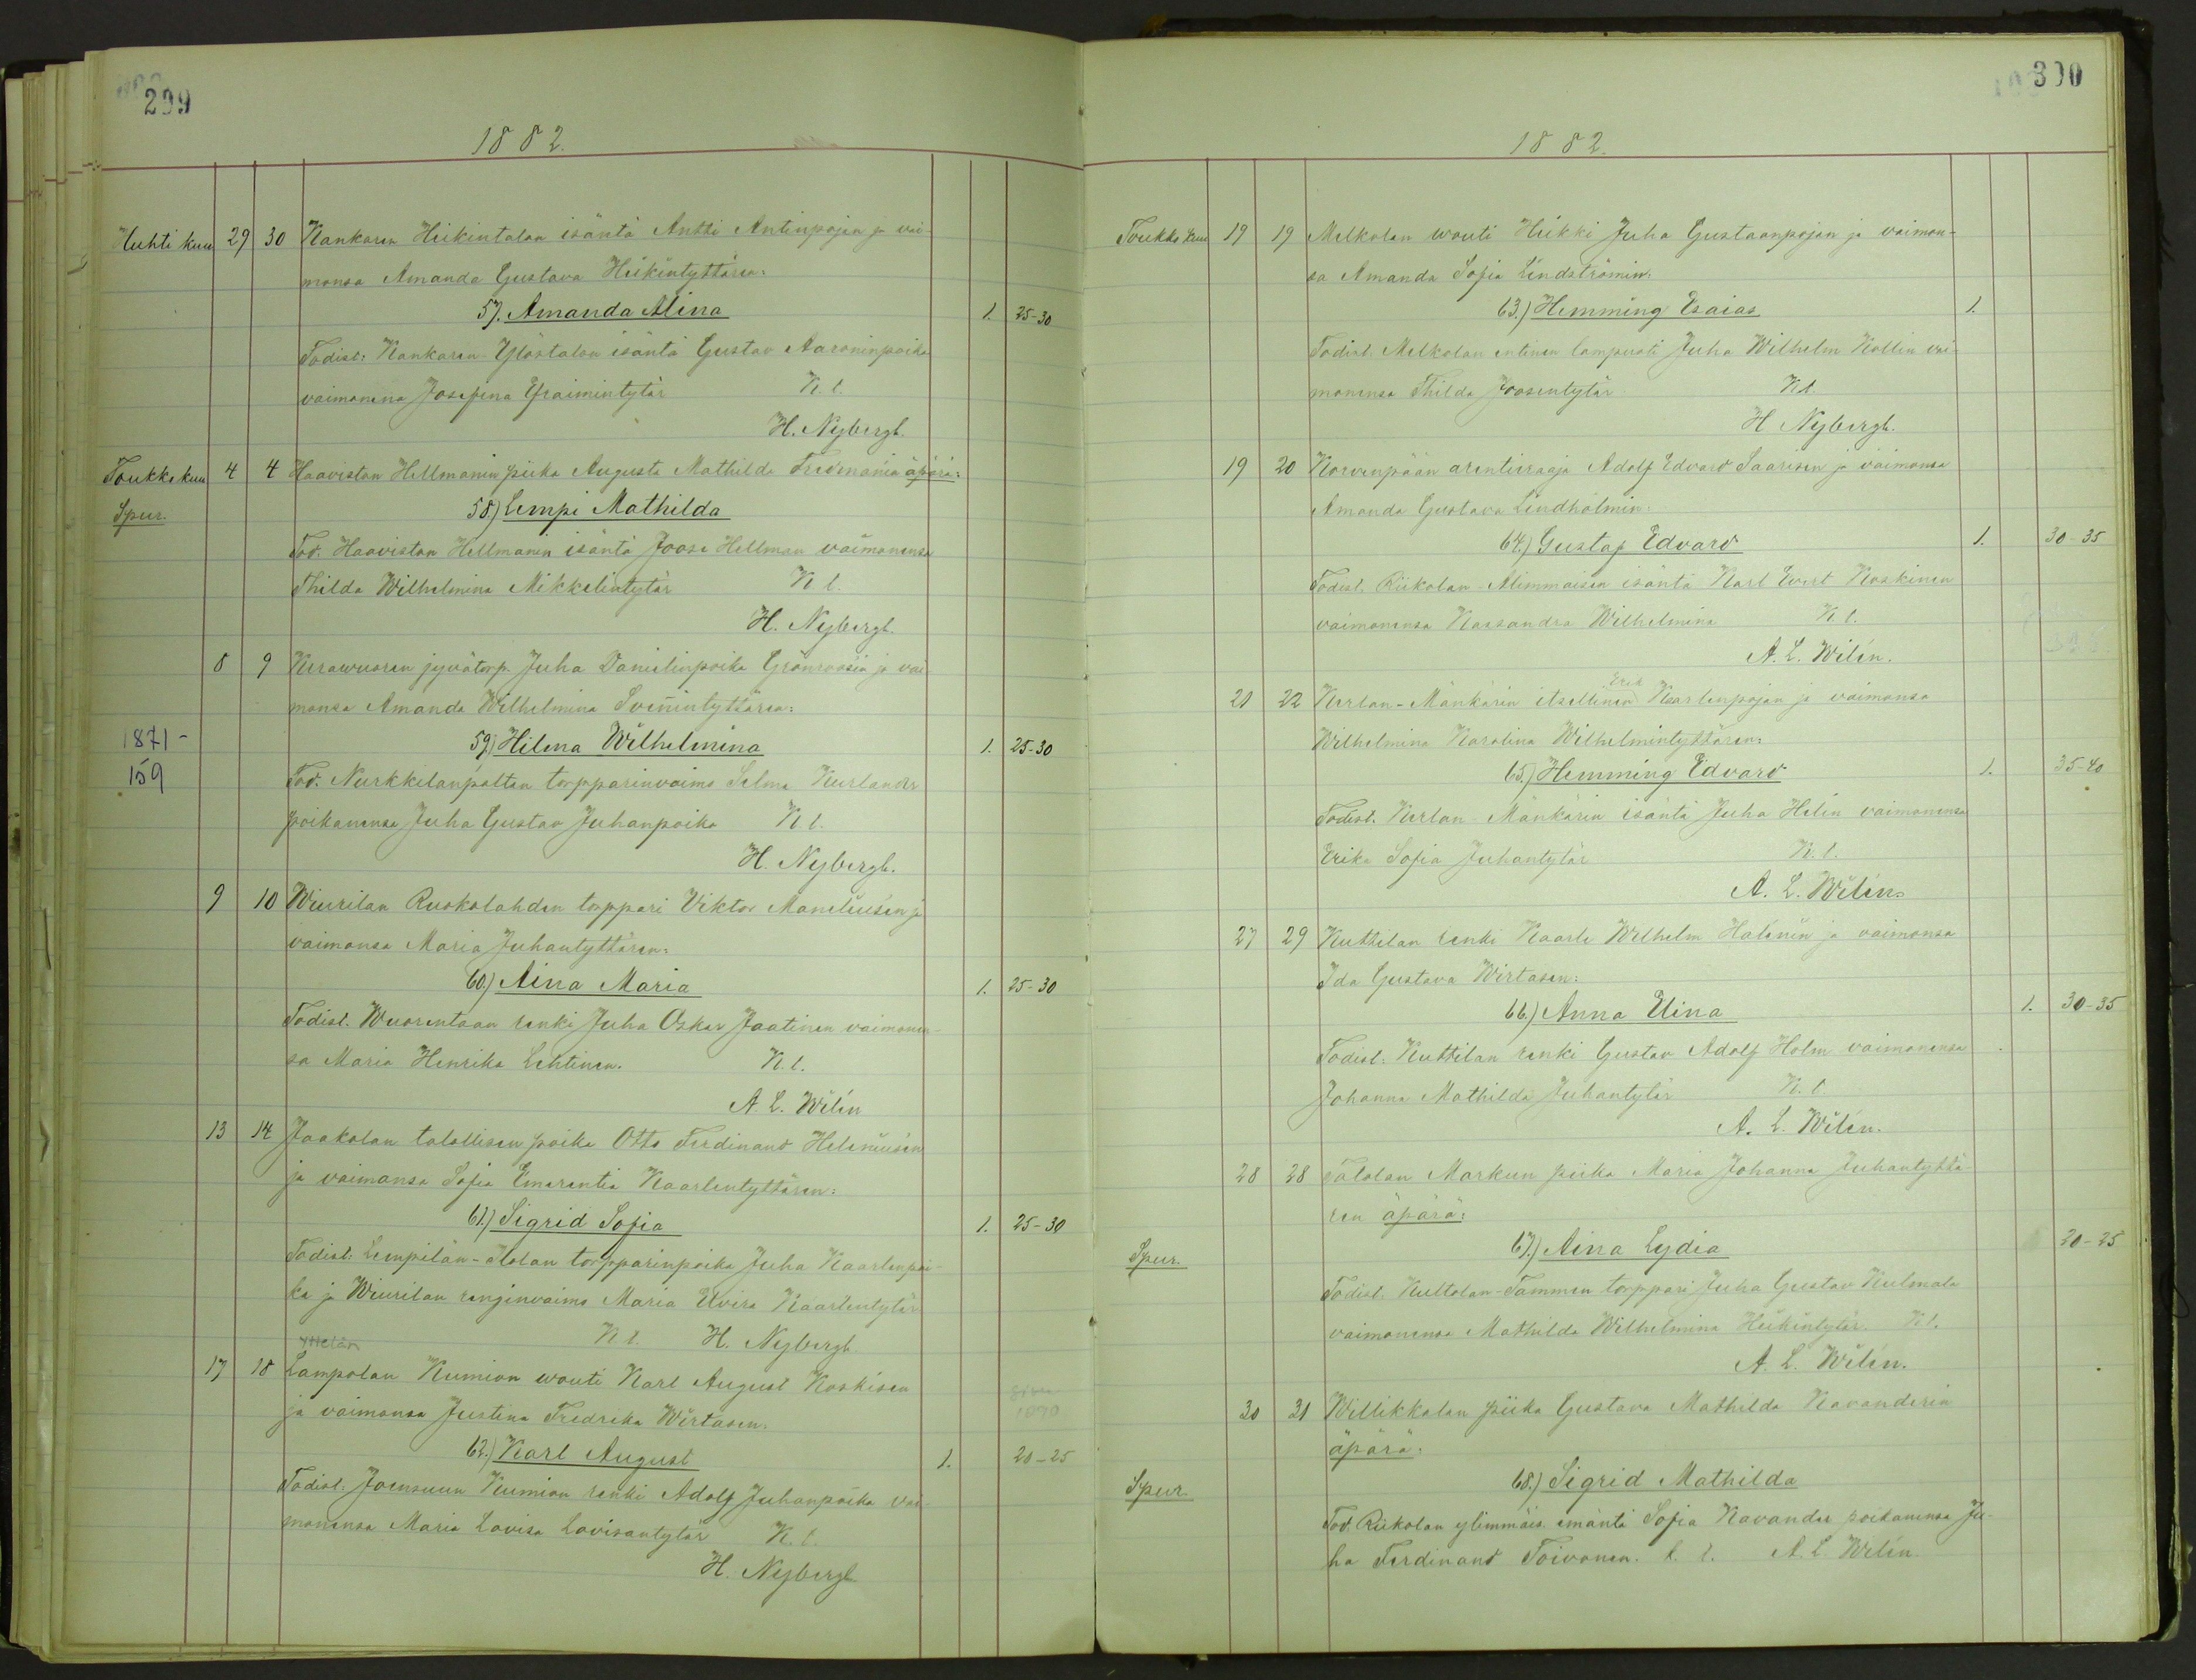 299
1882.
Huhti kuu 29 30 Kankaren Heikintalon isäntä Antti Antinpojan ja vai-
monsa Amanda Gustava Heikintyttären:
57. Amanda Alina 1. 25-30
Todist: Kankaren Ylöstalon isäntä Gustav Aaroninpoika
vaimonena Josefina Efraimintytär K. l.
H. Nybergh.
Toukkokuu 4 4 Haaviston Hellmanin piika Augusta Mathilda Fredmanin äpärä:
Spur. 58.) Lempi Mathilda
Tod. Haaviston Hellmanin isäntä Joose Hellman vaimonensa
Thilda Wilhelmina Mikkelintytär K. l.
H. Nybergh.
8 9 Kerawuoren jyvätorp. Juha Danielinpoika Grönroosin ja vai-
monsa Amanda Wilhelmina Svenintyttären:
1871-
159
59.) Hilma Wilhelmina 1. 25-30
Tod. Nurkkilanpaltan torpparinvaimo Selma Kurlander
poikanensa Juha Gustav Juhanpoika K. l.
H. Nybergh.
9 10 Wiurilan Ruokolahden torppari Viktor Maneliusen ja
vaimonsa Maria Juhantyttären:
60.) Aina Maria 1. 25-30
Todist. Wuorentaan renki Juha Oskar Jaatinen vaimonen-
sa Maria Henrika Lehtinen. K. l.
A. L. Wilén
13 14 Jaakolan talollisen poika Otto Ferdinand Heleniusen
ja vaimonsa Sofia Emerentia Kaarlentyttären:
61.) Sigrid Sofia 1. 25-30
Todist: Lempilän-Alolan torpparinpoika Juha Kaarlenpoi-
ka ja Wiurilan renginvaimo Maria Elvira Kaarlentytär
K l. H. Nybergh.
17 18 Lampolan Kumion wouti Karl August Koskisen
ja vaimonsa Justina Fredrika Wirtasen.
62.) Karl August 1. 20-25
Todist: Joensuun Kumion renki Adolf Juhanpoika vai-
monensa Maria Lovisa Lovisantytär K. l.
H. Nybergh
300
1882.
Toukko kuu 19 19 Melkolan wouti Heikki Juha Gustaanpojan ja vaimon-
sa Amanda Sofia Lindströmin:
63.) Hemming Esaias 1.
Todist. Melkolan entinen lampuoti Juha Wilhelm Kollin vai-
monensa Thilda Joosentytär K.l.
H Nybergh.
19 20 Korvenpään arentieraaja Adolf Edvard Saarisen ja vaimonsa
Amanda Gustava Lindholmin:
64.) Gustaf Edvard 1. 30-35
Todist. Riikolan Alimmaisen isäntä Karl Evert Koskinen
vaimonensa Kassandra Wilhelmina K. l.
A. L. Wilén.
21 22 Kerlan-Mänkärin itsellinen Erik Kaarlenpojan ja vaimonsa
Wilhelmina Karolina Wilhelmintyttären:
65.) Hemming Edvard 1. 35-40
Todist. Kerlan Mänkärin isäntä Juha Helin vaimonensa
Erika Sofia Juhantytär K. l.
A. L. Wilén.
27 29 Kuttilan renki Kaarle Wilhelm Helenin ja vaimonsa
Ida Gustava Wirtasen:
66.) Anna Elina 1. 30-35
Todist: Kuttilan renki Gustav Adolf Holm vaimonensa
Johanna Mathilda Juhantytär K. l.
A. L. Wilén.
28 28 Tatolan Markun piika Maria Johanna Juhantyttä-
ren äpärä:
Spur. 67.) Aina Lydia 20-25
Todist. Kultolan-Tammen torppari Juha Gustav Kulmala
vaimonensa Mathilda Wilhelmina Heikintytär K l.
A. L. Wilén.
30 31 Willikkalan piika Gustava Mathilda Kavanderin
äpärä:
Spur 68.) Sigrid Mathilda
Tod. Riikolan ylimmäis. emäntä Sofia Kavander poikanensa Ju-
ha Ferdinand Toivonen. k. l. A. L. Wilén.